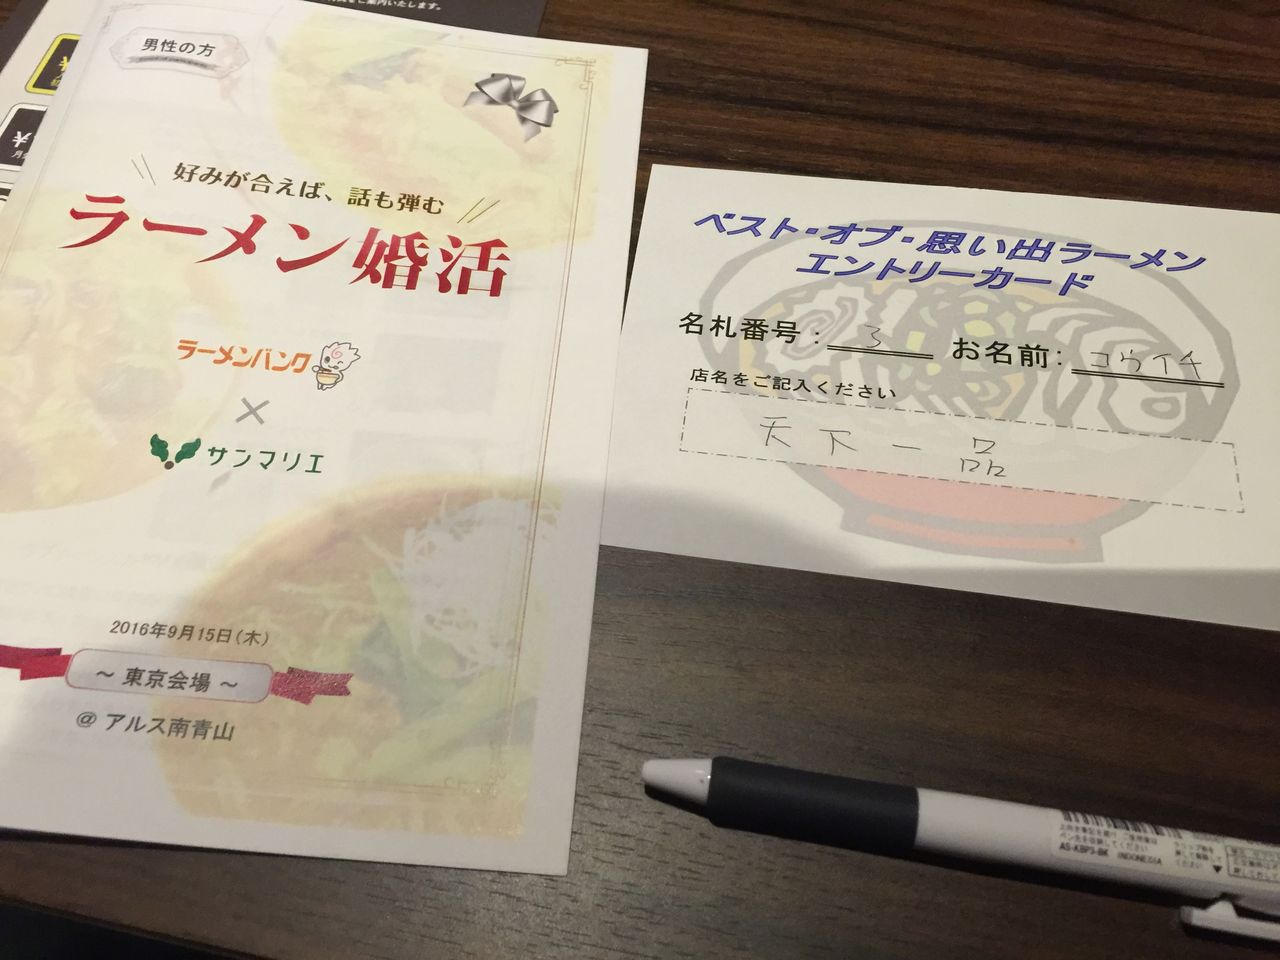 をご案内いたします。
男性の方
好みが合えば、話も弾む
ラーメン婚活
ラーメンバンク
×
サンマリエ
2016年9月15日(木)
～ 東京会場 ～
@ アルス南青山
ベスト・オブ・思い出ラーメン
エントリーカード
名札番号: 3 お名前: コウイチ
店名をご記入ください
天下一品
AS-KBP3-BK INDONESIA